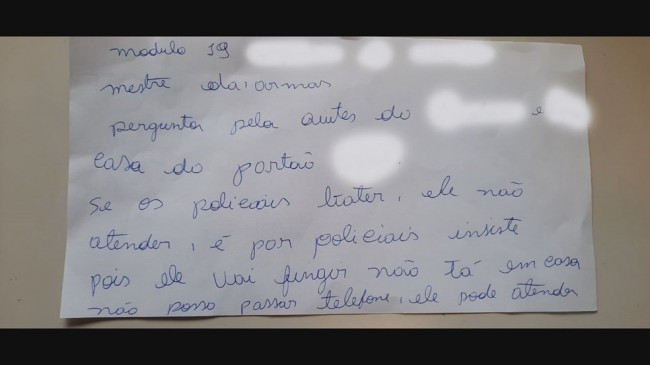 modulo 19
mestre da: armas
pergunta pela antes do e
casa do portão
se os policiais bater, ele não
atender, é por policiais insiste
pois ele vai fingir não tá em casa
não posso passar telefone, ele pode atender